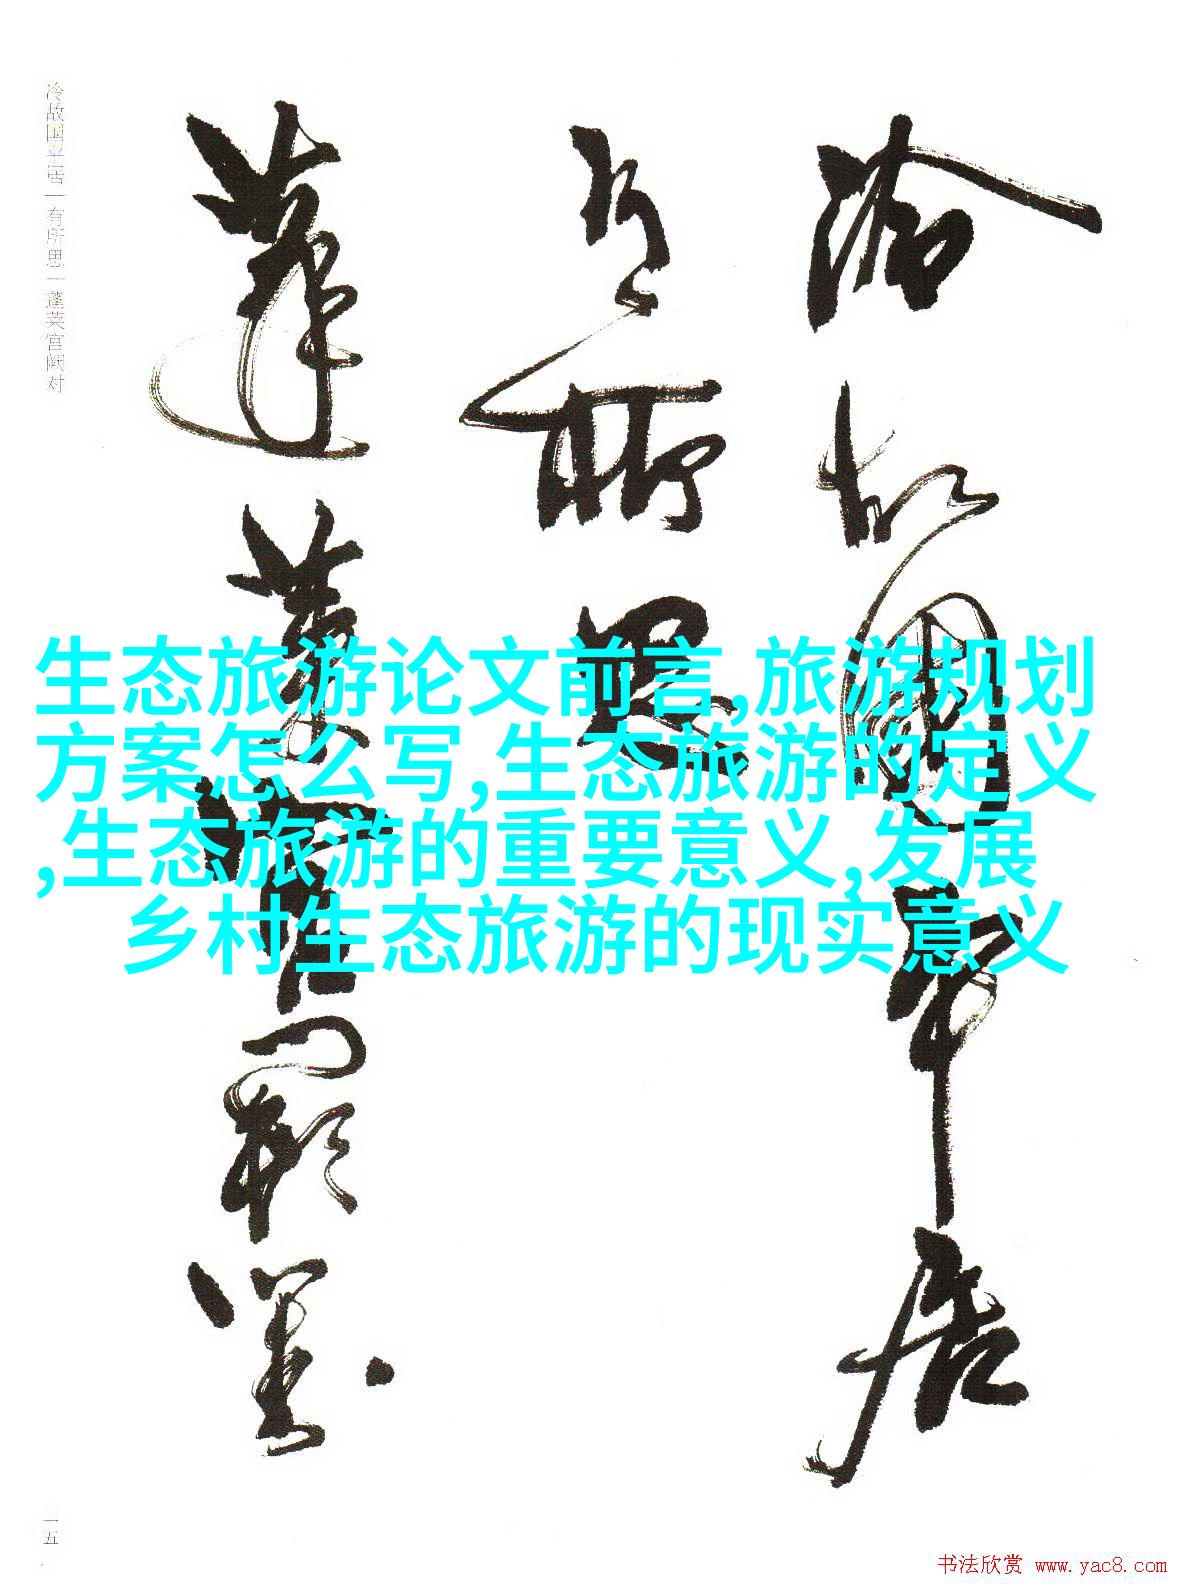 冷故国平居
有所思
蓬莱宫阙对
冷故国平居|有所思|蓬莱宫阙对
生态旅游论文前言,旅游规划
方案怎么写,生态旅游的定义
,生态旅游的重要意义,发展
乡村生态旅游的现实意义
一五
书法欣赏 www.yac8.com